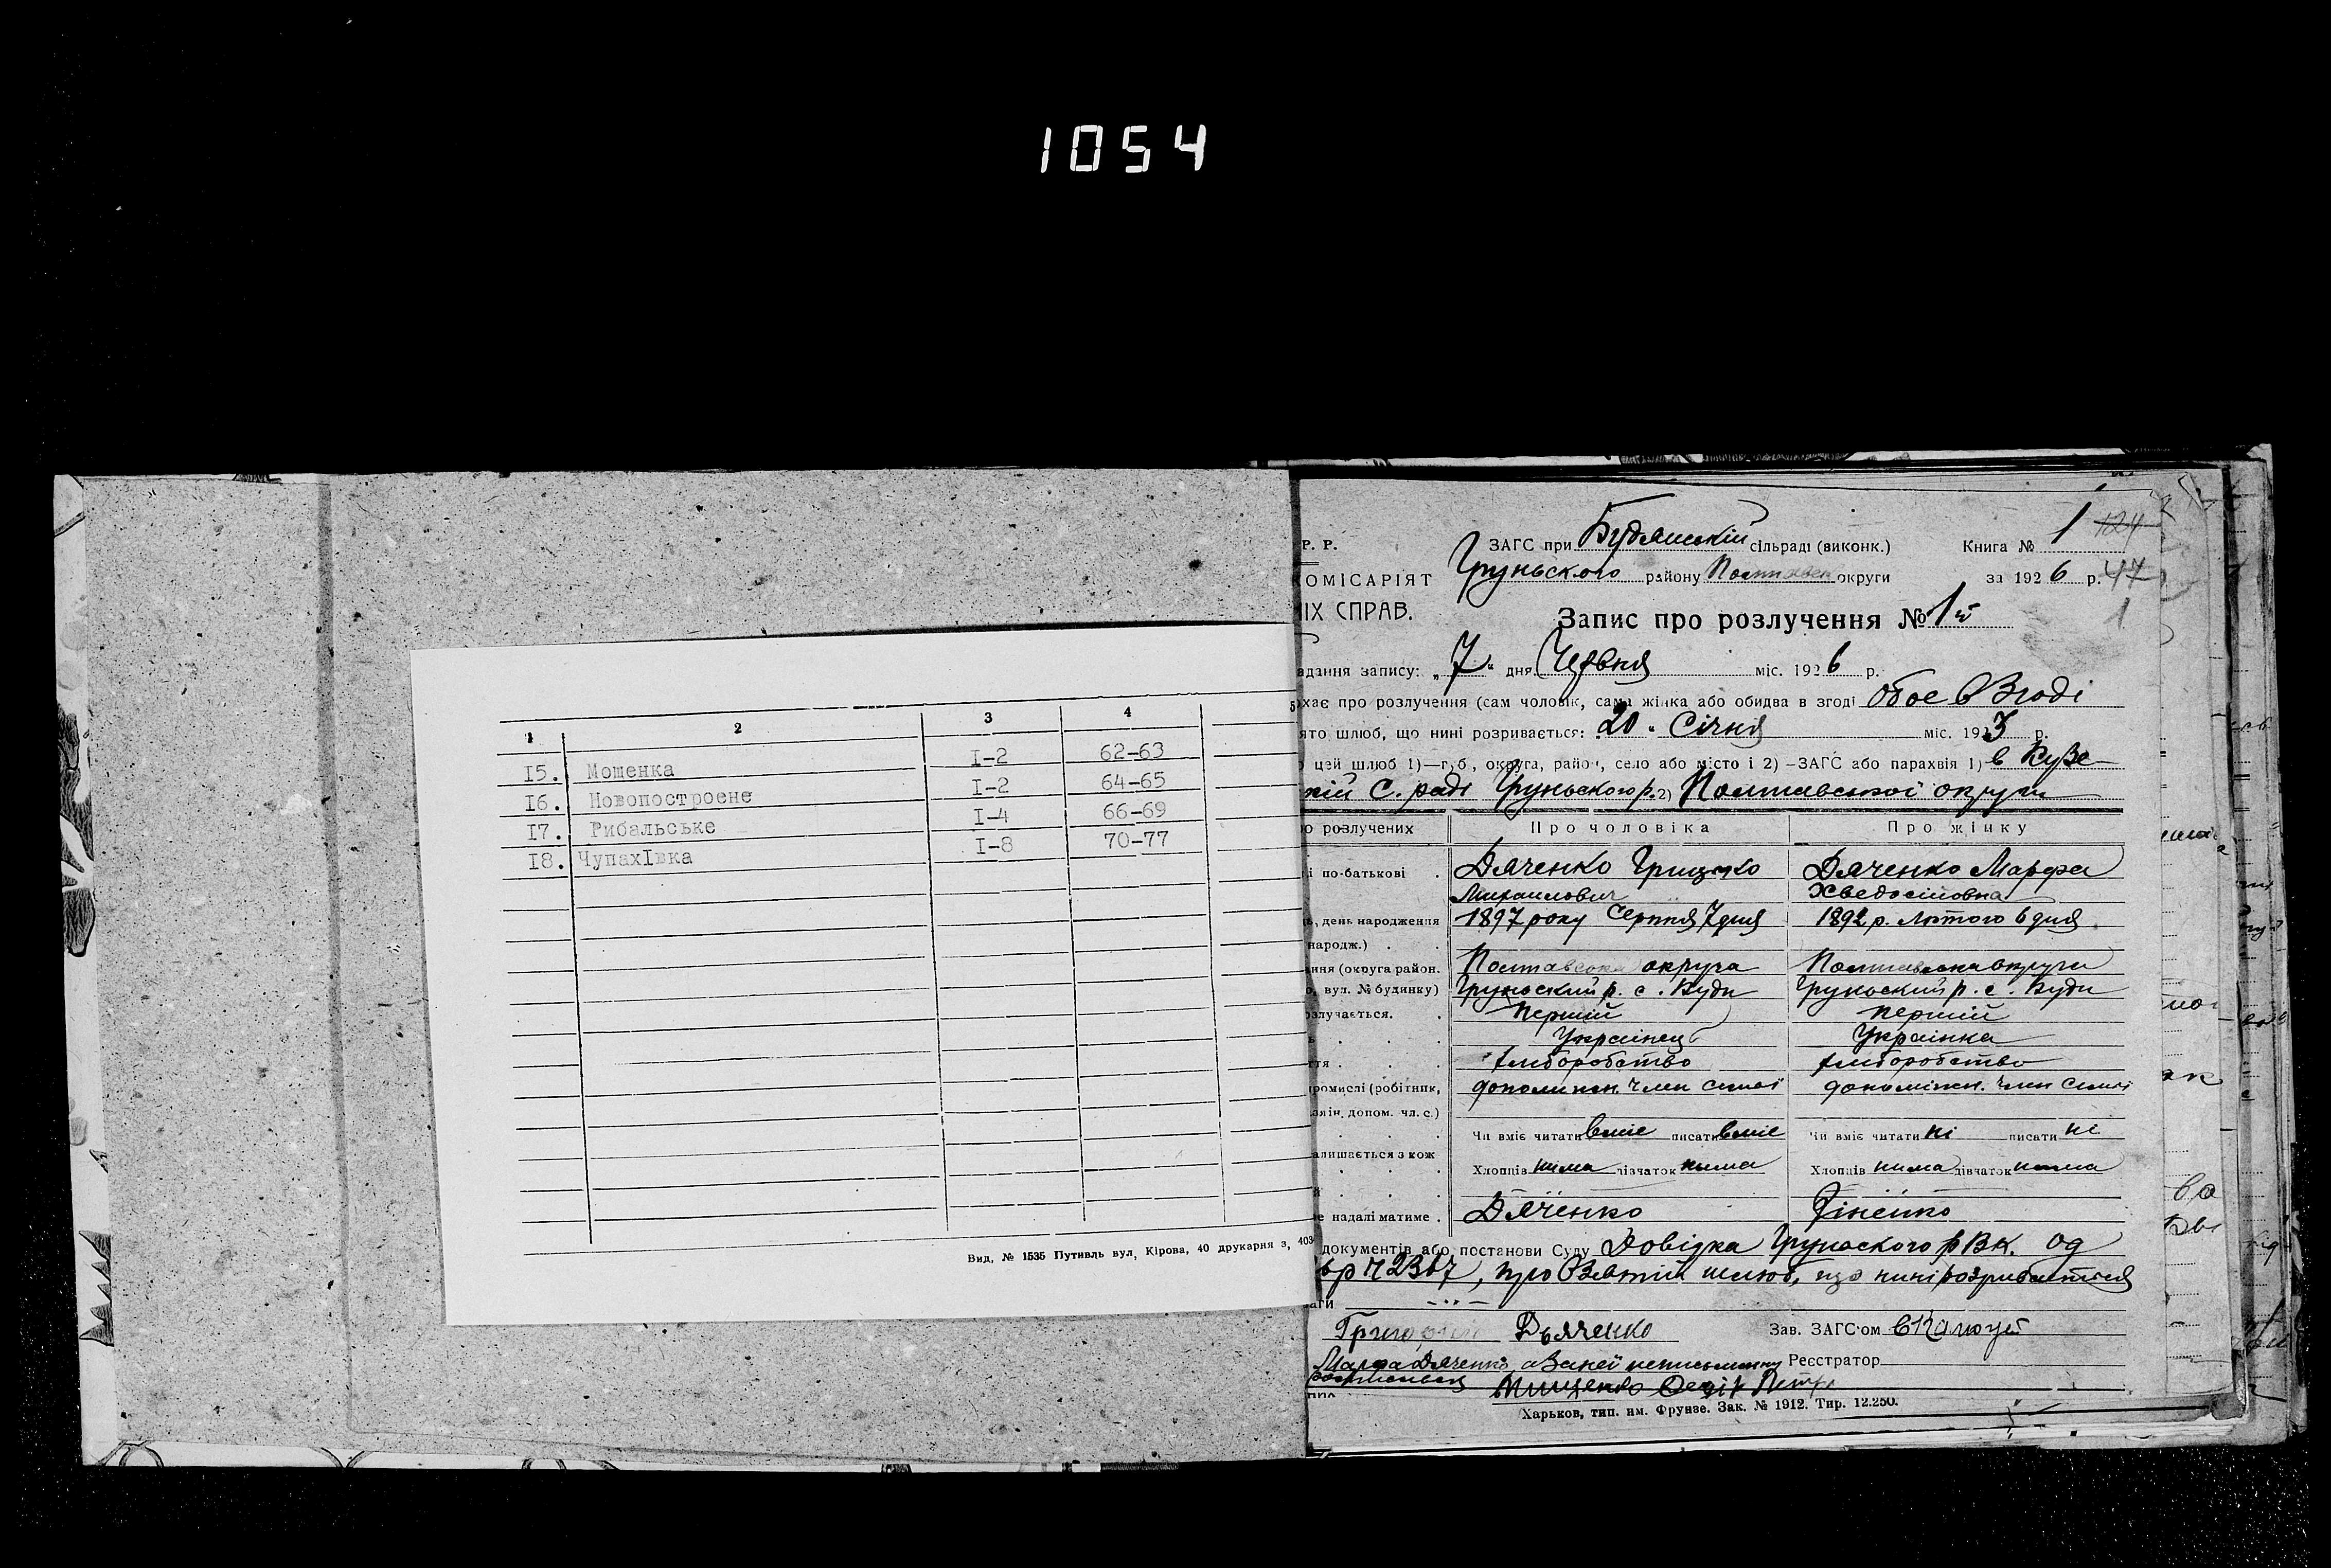 1054
1 2 3 4 5
15. Мошенка I-2 62-63
16. Новопостроене I-2 64-65
17. Рибальське I-4 66-69
18. ЧупахIвка I-8 70-77
Вид, № 1535 Путивль вул, Кірова, 40 друкарня з, 403
Р. Р. ЗАГС при Будянській сільраді (виконк.) Книга № 1 124
ОМІСАРІЯТ Груньського району Полтавськ округи за 1926 р. 47
ІХ СПРАВ. Запис про розлучення № 1й 1
адання запису: „7“ дня Червня міс. 1926 р.
хає про розлучення (сам чоловік, сама жінка або обидва в згоді Обоє в Згоді
ято шлюб, що нині розривається: 20 " Січня міс. 1923 р.
цей шлюб 1)—губ, округа, район, село або місто і 2) –ЗАГС або парахвія 1) в
кій С. раді Груньского р. 2) Полтавської округи
о розлучених Про чоловіка Про жінку
і по-батькові Дяченко Грицько Дяченко Марфа
Михайлович
день народження 1897 року Серпня 7 дня 1892 р. Лютого 6 дня
народж.)
ння (округа район. Полтавська округа Полтавська округа
вул. № будинку) Груньский р. с. Буди Груньский р. с. Буди
озлучається. Перший Перший
Українець Українка
ття Хліборобство Хліборобство
ромислі (робітник, допоміжн. член сімї допоміжн. член сімї
зяїн, допом. чл. с.)
Чи вміє читати вміє писати вміє Чи вміє читати ні писати ні
алишається з кож
Хлопців нима дівчаток нима Хлопців нима дівчаток нима
е надалі матиме Дяченко
документів або постанови Суду Довідка Груньского рВК. од
2367, про Взятий шлюб, що нині розривается
аги
Григорий Дьяченко Зав. ЗАГС'ом
Марфа Дяченко, а За неї неписьменну Реєстратор
росписався Мищенко
Харьков, тип. им. Фрунзе. Зак. № 1912. Тир. 12.250.